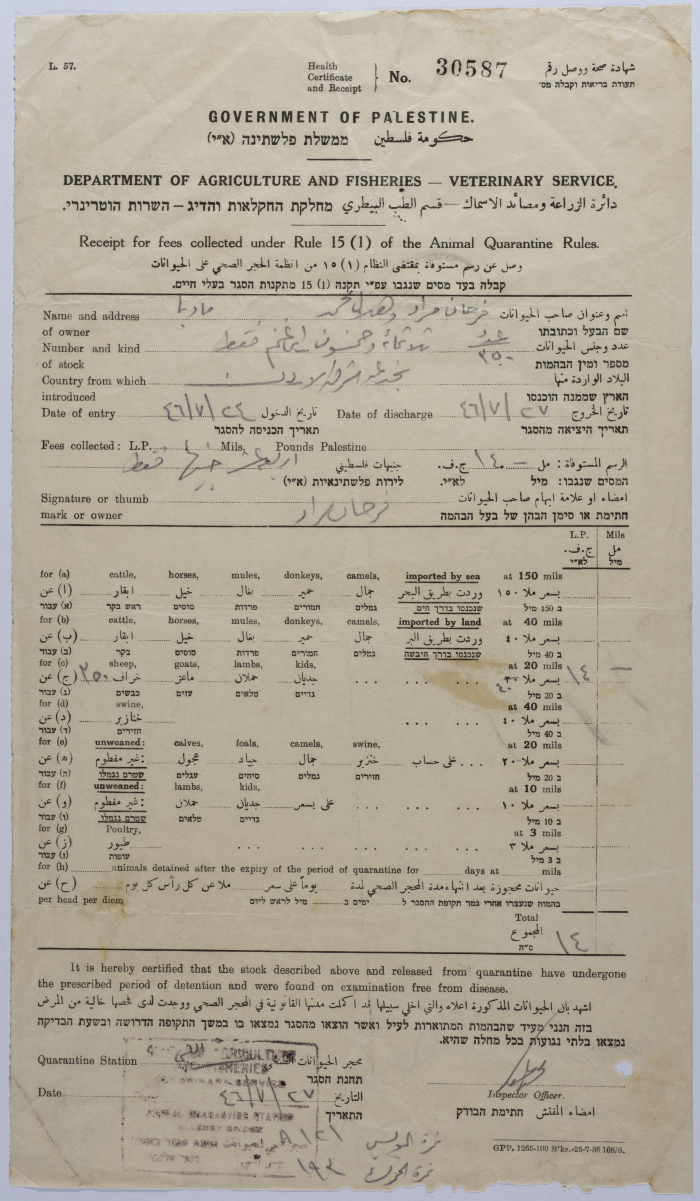 L. 57.
Health
Certificate
and Receipt
No. 30587
شهادة صحة ووصل رقم
תעודת בריאות וקבלה מס׳
GOVERNMENT OF PALESTINE.
حكومة فلسطين ממשלת פלשתינה (א״י)
DEPARTMENT OF AGRICULTURE AND FISHERIES — VETERINARY SERVICE.
دائرة الزراعة ومصائد الاسماك — قسم الطب البيطري מחלקת החקלאות והדיג – השרות הוטרינרי.
Receipt for fees collected under Rule 15 (1) of the Animal Quarantine Rules.
وصل عن رسم مستوفاة بمقتضى النظام ١٥ (١) من انظمة الحجر الصحي على الحيوانات
קבלה בעד מסים שנגבו עפ״י תקנה 15 (1) מתקנות הסגר בעלי חיים.
Name and address فرحان مراد مادبا اسم وعنوان صاحب الحيوانات
of owner שם הבעל וכתובתו
Number and kind ثلاثماية وخمسون غنم فقط عدد ٣٥٠ عدد وجنس الحيوانات
of stock מספר ומין הבהמות
Country from which شرق الاردن البلاد الواردة منها
introduced הארץ שממנה הוכנסו
Date of entry ٤٦/٧/٢٤ تاريخ الدخول Date of discharge ٤٦/٧/٢٧ تاريخ الخروج
תאריך הכניסה להסגר תאריך היציאה מהסגר
Fees collected: L.P. Mils, Pounds Palestine
اربعة عشر جنيها فقط جنيهات فلسطيني ج.ف. ١٤ – الرسم المستوفاة: مل
לירות פלשתינאיות (א״י) לא״י. המסים שנגבו: מיל
Signature or thumb فرحان مراد امضاء او علامة ابهام صاحب الحيوانات
mark or owner חתימת או סימן הבהן של בעל הבהמה
L.P. Mils
ج.ف. مل
לא״י מיל
for (a) cattle, horses, mules, donkeys, camels, imported by sea at 150 mils
(ا) عن ابقار خيل بغال حمير جمال وردت بطريق البحر بسعر ملا ١٥٠
(א) עבור ראש בקר סוסים פרדות חמורים גמלים שנכנסו בדרך הים ב 150 מיל
for (b) cattle, horses, mules, donkeys, camels, imported by land at 40 mils
(ب) عن ابقار خيل بغال حمير جمال وردت بطريق البر بسعر ملا ٤٠
(ב) עבור בקר סוסים פרדות חמורים גמלים שנכנסו בדרך היבשה ב 40 מיל
for (c) sheep, goats, lambs, kids, at 20 mils
(ج) عن ٣٥٠ خراف ماعز حملان جديان بسعر ملا ٤٠ ١٤ –
(ג) עבור כבשים עזים טלאים גדיים ב 20 מיל
for (d) swine, at 40 mils
(د) عن خنازير بسعر ملا ٤٠
(ד) עבור חזירים ב 40 מיל
for (e) unweaned: calves, foals, camels, swine, at 20 mils
(ه) عن غير مفطوم: عجول جياد جمال خنزير على حساب بسعر ملا ٢٠
(ה) עבור שטרם נגמלו עגלים סיחים גמלים חזירים ב 20 מיל
for (f) unweaned: lambs, kids, at 10 mils
(و) عن غير مفطوم: حملان جديان على بسعر بسعر ملا ١٠
(ו) עבור שטרם נגמלו טלאים גדיים ב 10 מיל
for (g) Poultry, at 3 mils
(ز) عن طيور بسعر ملا ٣
(ז) עבור עופות ב 3 מיל
for (h) animals detained after the expiry of the period of quarantine for days at mils
(ح) عن حيوانات محجوزة بعد انتهاء مدة الحجر الصحي لمدة يوماً على سعر ملا عن كل رأس كل يوم
per head per diem בהמות שנעצרו אחרי גמר תקופת ההסגר ל ימים ב מיל לראש ליום
Total
المجموع ١٤
ס״ה
It is hereby certified that the stock described above and released from quarantine have undergone
the prescribed period of detention and were found on examination free from disease.
اشهد بان الحيوانات المذكورة اعلاه والتي اخلي سبيلها قد اكملت مدتها القانونية في المحجر الصحي ووجدت لدى فحصها خالية من المرض
בזה הנני מעיד שהבהמות המתוארות לעיל ואשר הוצאו מהסגר נמצאו בו במשך התקופה הדרושה ובשעת הבדיקה
נמצאו בלתי נגועות בכל מחלה שהיא.
Quarantine Station محجر الحيوانات
תחנת הסגר
Date ٤٦/٧/٢٧ التاريخ
התאריך
Inspector Officer.
امضاء المفتش חתימת הבודק
AGRICULTURE
FISHERIES
VETERINARY SERVICE
ANIMAL QUARANTINE STATION
ALLENBY BRIDGE
١٢١
١٩٣
GPP. 1265-100 B'ks.-25-7-36 168/S.